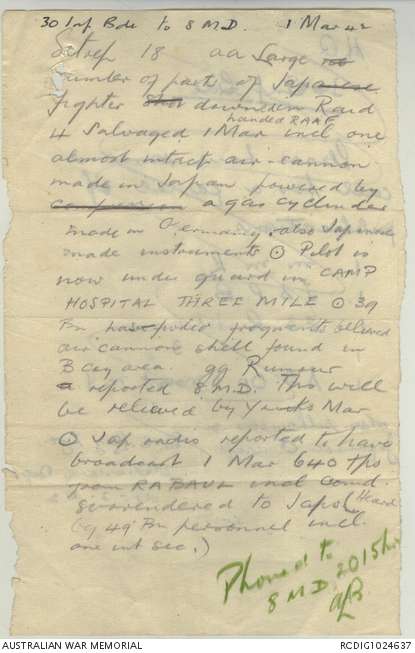 30 Inf Bde to 8 M.D. 1 Mar 42
Sitrep 18 aa Large
number of parts of Japanese
fighter shot downed in Raid
handed RAAF
4 Salvaged 1 Mar incl one
almost intact air-cannon
made in Japan powered by
a gas cyclinder
made in Germany. also Japanese
made instruments ⊙ Pilot is
now under guard in CAMP
HOSPITAL THREE MILE ⊙ 39
Bn has fragments believed
air cannon shell found in
B Coy area. gg Rumour
reported 8 M.D. This will
be relieved by Yanks Mar
⊙ Jap radio reported to have
broadcast 1 Mar 640 tps
from RABAUL incl Comd.
surrendered to Japs (Heard
by 49 Bn personnel incl.
one int sec.)
Phoned to
8 M.D. 2015hrs
AUSTRALIAN WAR MEMORIAL
RCDIG1024637